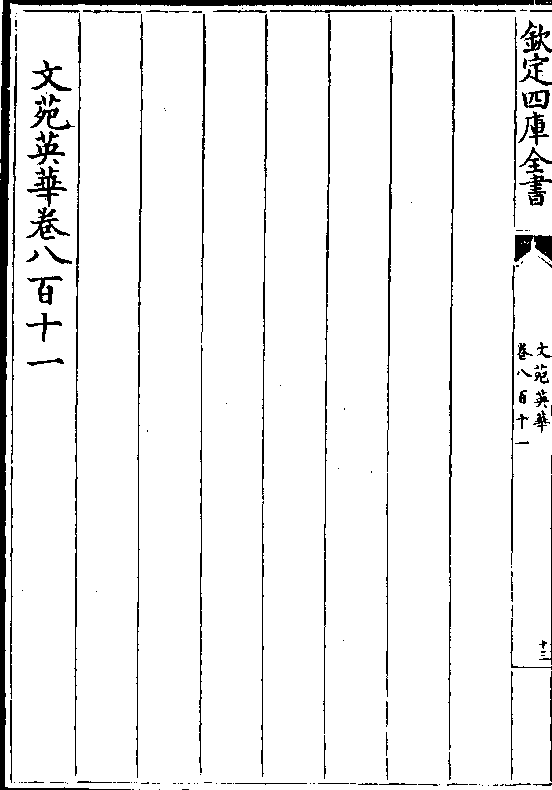 欽定四庫全書
文苑英華
卷八百十一
十三
文苑英華卷八百十一